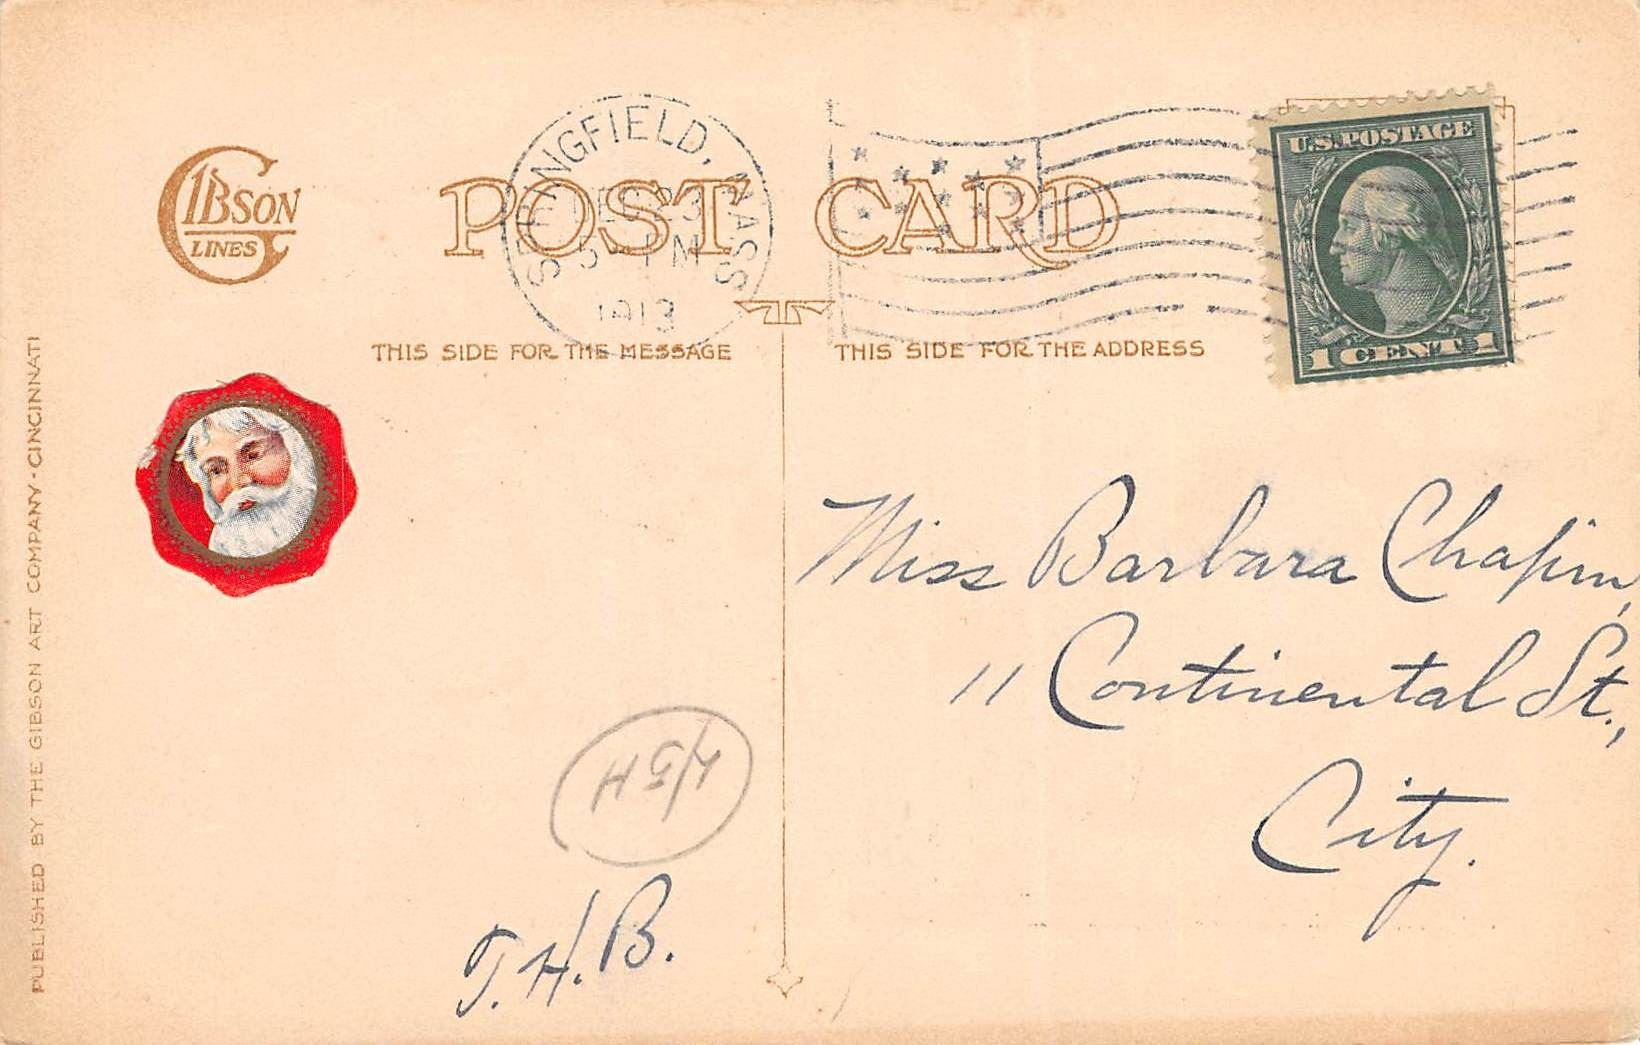 GIBSON
LINES
POST CARD
SPRINGFIELD, MASS
DEC 23
5 - PM
1913
U.S. POSTAGE
1 CENT 1
THIS SIDE FOR THE MESSAGE
THIS SIDE FOR THE ADDRESS
PUBLISHED BY THE GIBSON ART COMPANY · CINCINNATI
Miss Barbara Chapin,
11 Continental St.,
City.
T. H. B.